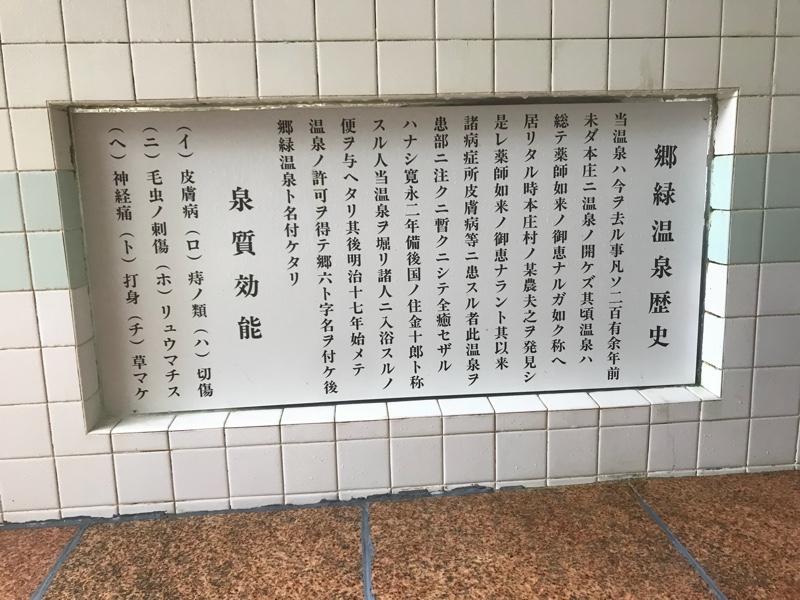 郷緑温泉歴史
当温泉ハ今ヲ去ル事凡ソ二百有余年前
未ダ本庄ニ温泉ノ開ケズ其頃温泉ハ
総テ薬師如来ノ御恵ナルガ如ク称ヘ
居リタル時本庄村ノ某農夫之ヲ発見シ
是レ薬師如来ノ御恵ナラント其以来
諸病症所皮膚病等ニ患スル者此温泉ヲ
患部ニ注クニ暫クニシテ全癒セザル
ハナシ寛永二年備後国ノ住金十郎ト称
スル人当温泉ヲ堀リ諸人ニ入浴スルノ
便ヲ与ヘタリ其後明治十七年始メテ
温泉ノ許可ヲ得テ郷六ト字名ヲ付ケ後
郷緑温泉ト名付ケタリ
泉質効能
(イ)皮膚病(ロ)痔ノ類(ハ)切傷
(ニ)毛虫ノ刺傷(ホ)リュウマチス
(ヘ)神経痛(ト)打身(チ)草マケ